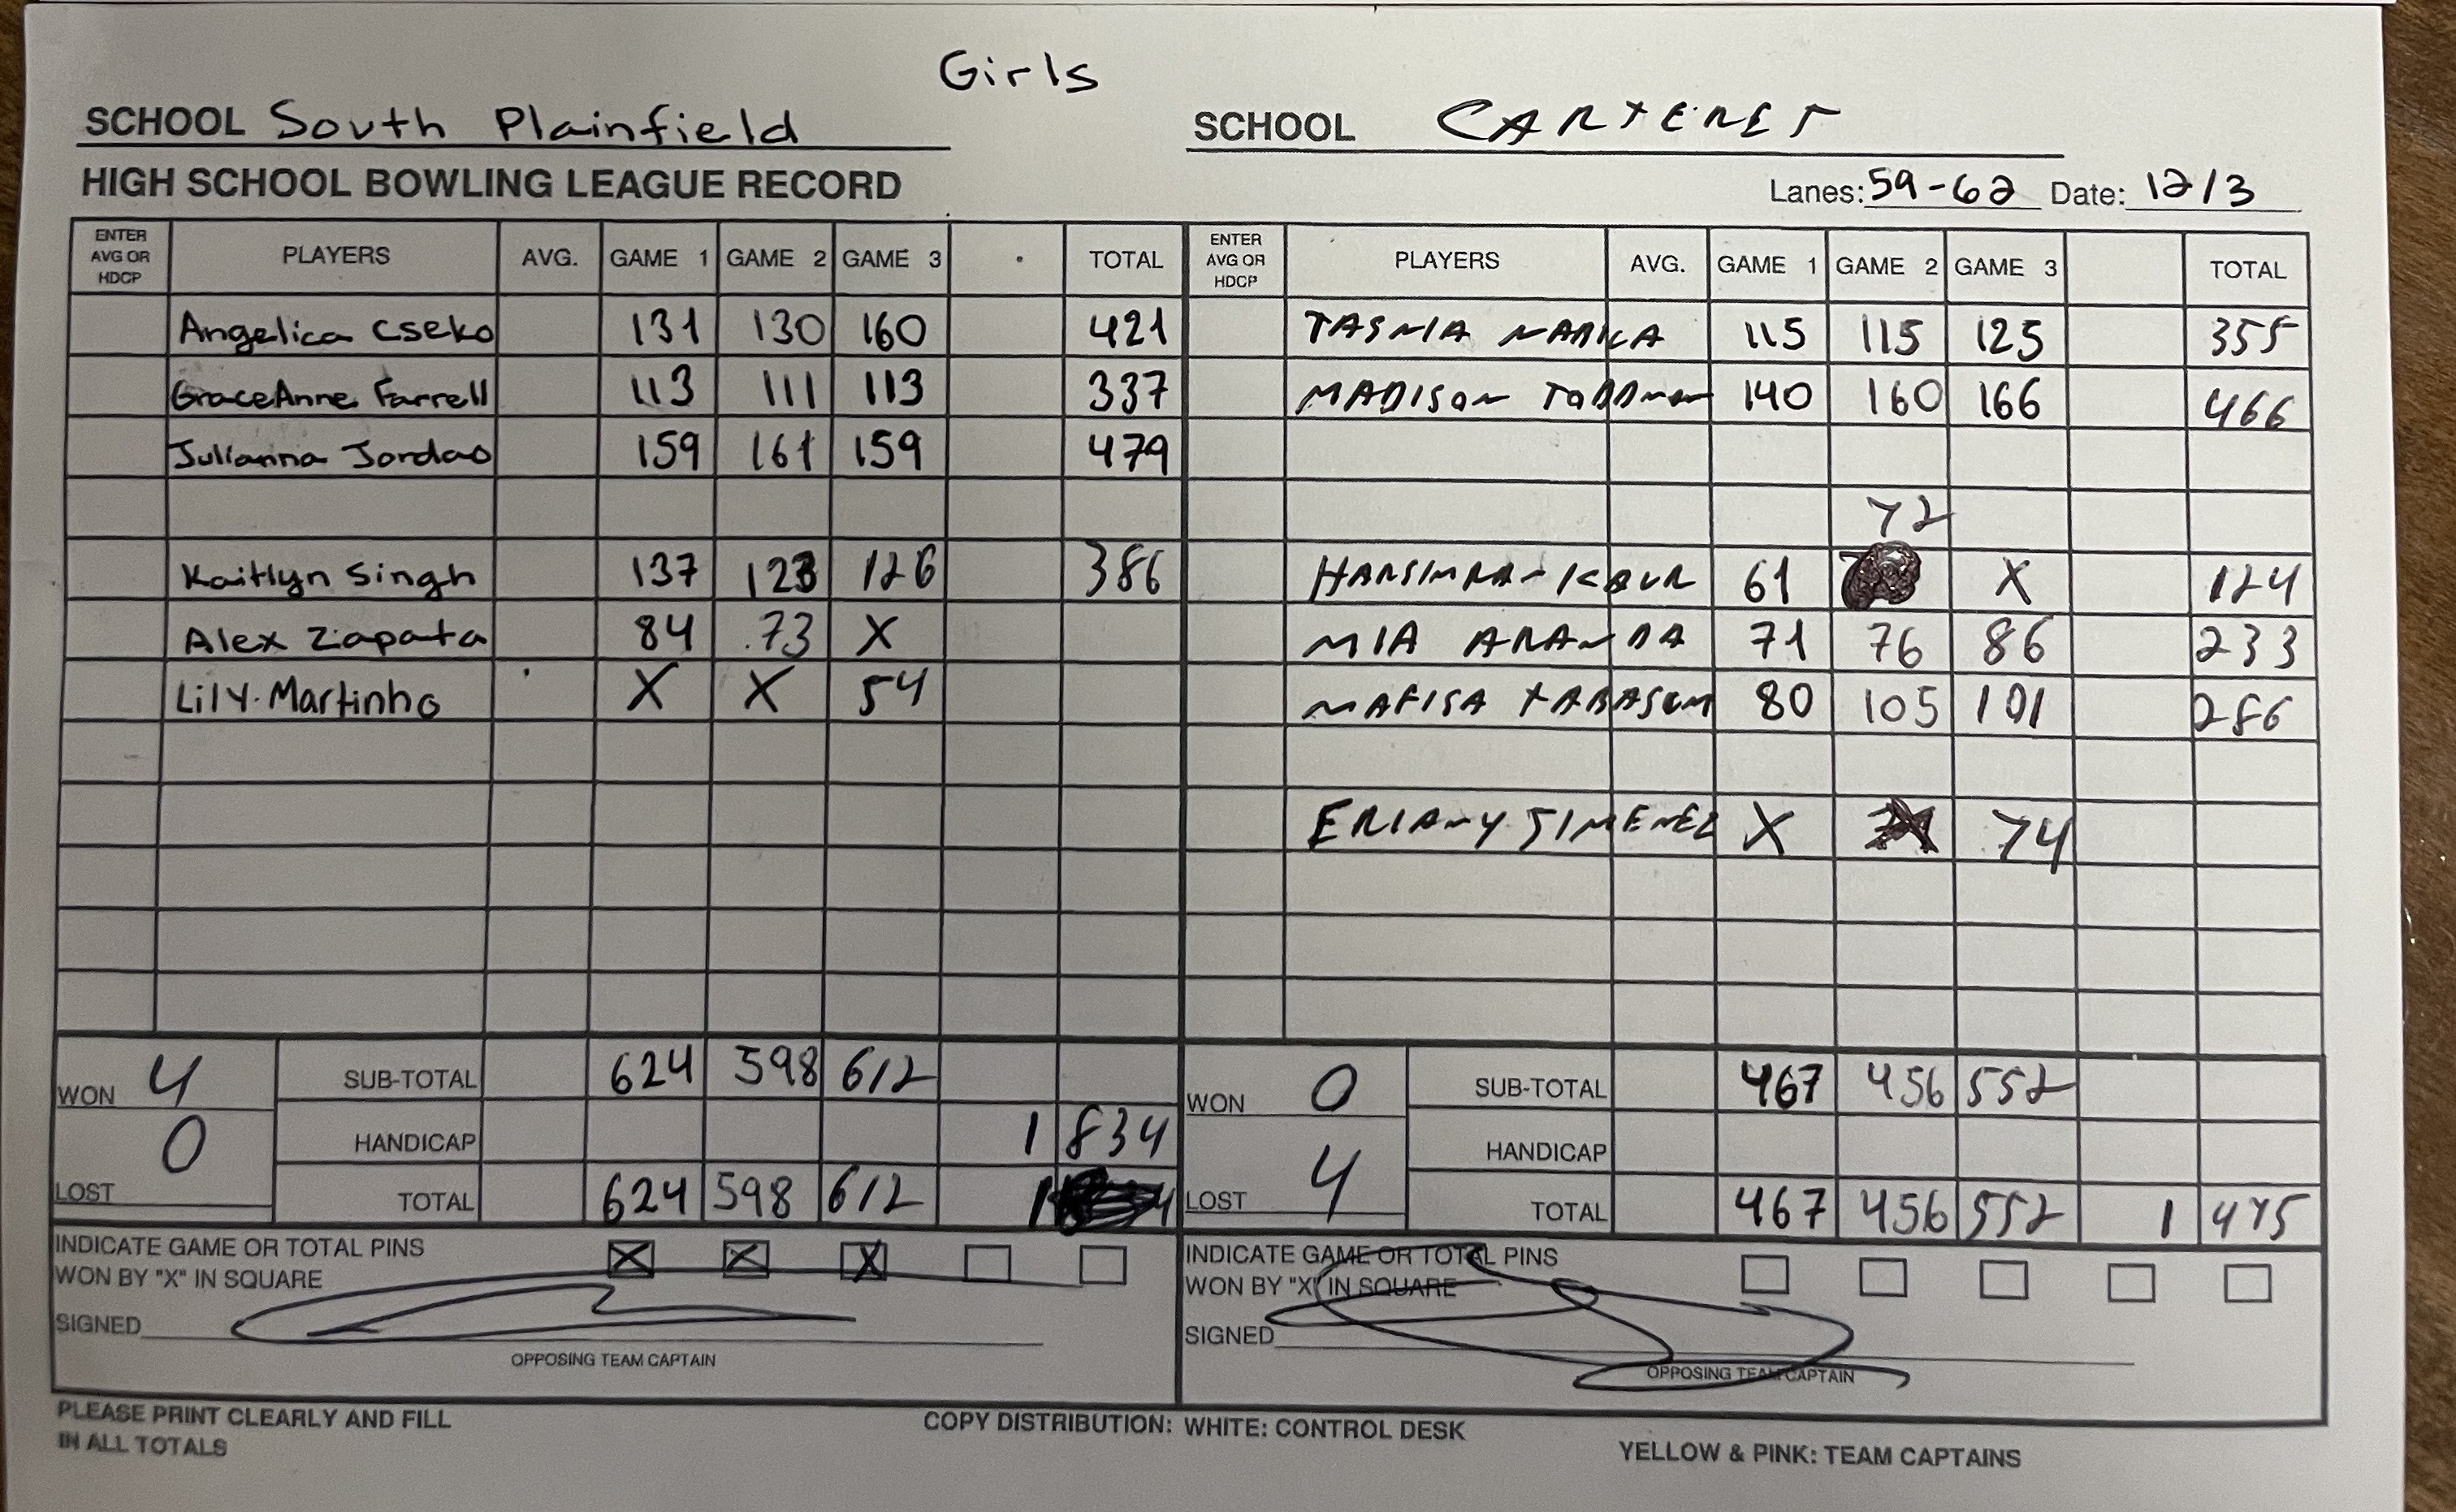 Girls
SCHOOL South Plainfield SCHOOL CARTERET
HIGH SCHOOL BOWLING LEAGUE RECORD Lanes: 59-62 Date: 12/3
ENTER AVG OR HDCP PLAYERS AVG. GAME 1 GAME 2 GAME 3 TOTAL ENTER AVG OR HDCP PLAYERS AVG. GAME 1 GAME 2 GAME 3 TOTAL
Angelica Cseko 131 130 160 421 TASNIA 115 115 125 355
GraceAnne Farrell 113 111 113 337 MADISON 140 160 166 466
Julianna Jordao 159 161 159 479
72
Kaitlyn Singh 137 123 126 386 HARSIMRAN KAUR 61 X 124
Alex Zapata 84 73 X MIA ARANDA 71 76 86 233
Lily Martinho X X 54 NAFISA TABASUM 80 105 101 286
ERIANY JIMENEZ X 74
WON 4 SUB-TOTAL 624 598 612 WON 0 SUB-TOTAL 467 456 552
HANDICAP 1 834 HANDICAP
LOST 0 TOTAL 624 598 612 LOST 4 TOTAL 467 456 552 1 475
INDICATE GAME OR TOTAL PINS WON BY "X" IN SQUARE X X X INDICATE GAME OR TOTAL PINS WON BY "X" IN SQUARE
SIGNED SIGNED
OPPOSING TEAM CAPTAIN OPPOSING TEAM CAPTAIN
PLEASE PRINT CLEARLY AND FILL IN ALL TOTALS COPY DISTRIBUTION: WHITE: CONTROL DESK YELLOW & PINK: TEAM CAPTAINS